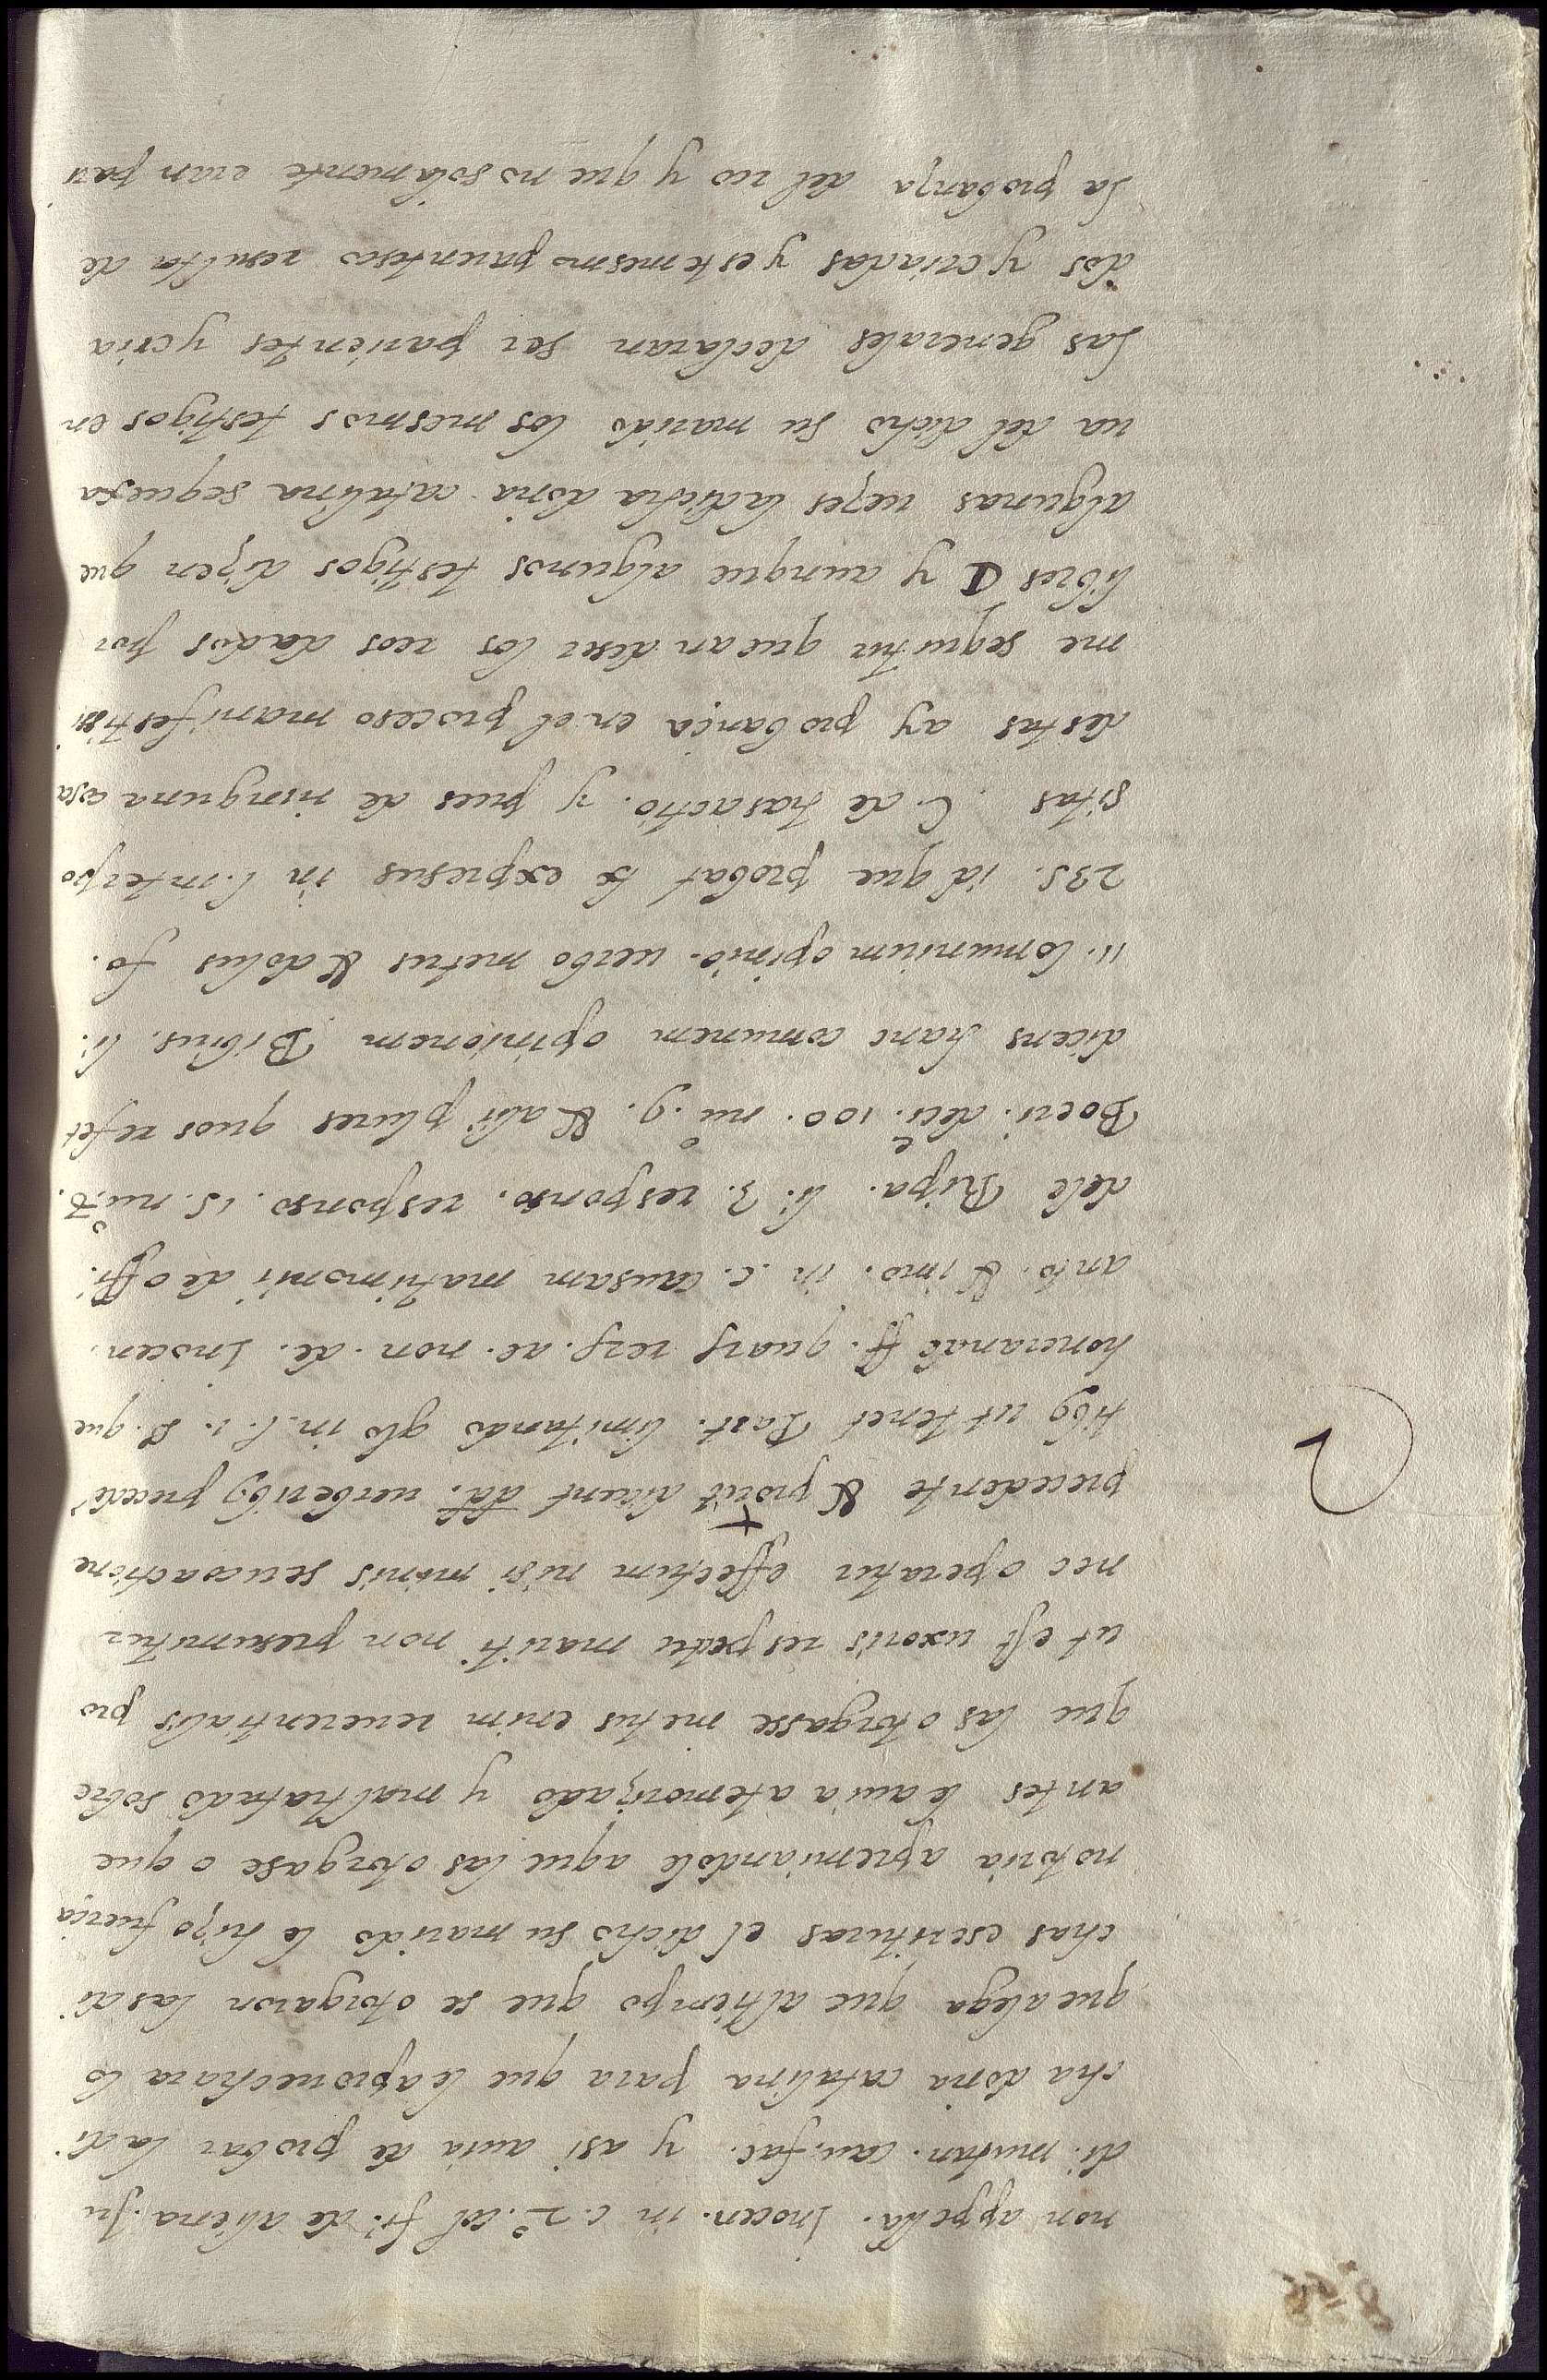 non appella. Inocen. in c. 2º. col fi. de aliena. Ju
di. mutan. cau. fac. y asi auia de probar la di
cha doña catalina para que le aprouechara lo
que alega que al tiempo que se otorgaron las di
chas escrituras el dicho su marido le hizo fuerça
notoria apremiandole a que las otorgase o que
antes le auia atemorizado y maltratado sobre
que las otorgasse metus enim reuerentialis pro
ut est uxoris respectu mariti non presumitur
nec operatur effectum nisi minis seu coactione
precedente & prout dicunt dd. uerberibus precedē
tibus ut tenet Past. limitando glo in. l. 1. §. que
honerandē ff. quarū rerū. ac. non. de. Inocen.
anto. & imo. in. c. causam matrimonii de offi.
dele Ripa. li. 3. respons. respons. 15. nu. 7.
Boeri. deci. 100. nu. 9. & alii plures quos refet
dicens hanc comunem opinionem Bibius. li.
11. Comunium opinio. uerbo metus & dolus fo.
235. id que probat tx expresus in l. interpo
sitas C. de trasactio. y pues de ninguna cosa
destas ay probança en el proceso manifestissi
me sequitur que an deser los reos dados por
libres ¶ y aunque algunos testigos dizen que
algunas uezes la dicha doña catalina se quexa
ua del dicho su marido los mesmos testigos en
las generales declaran ser parientes y cria
dos y criadas y este mesmo parentesco resulta de
la probança del reo y que no solamente eran pari